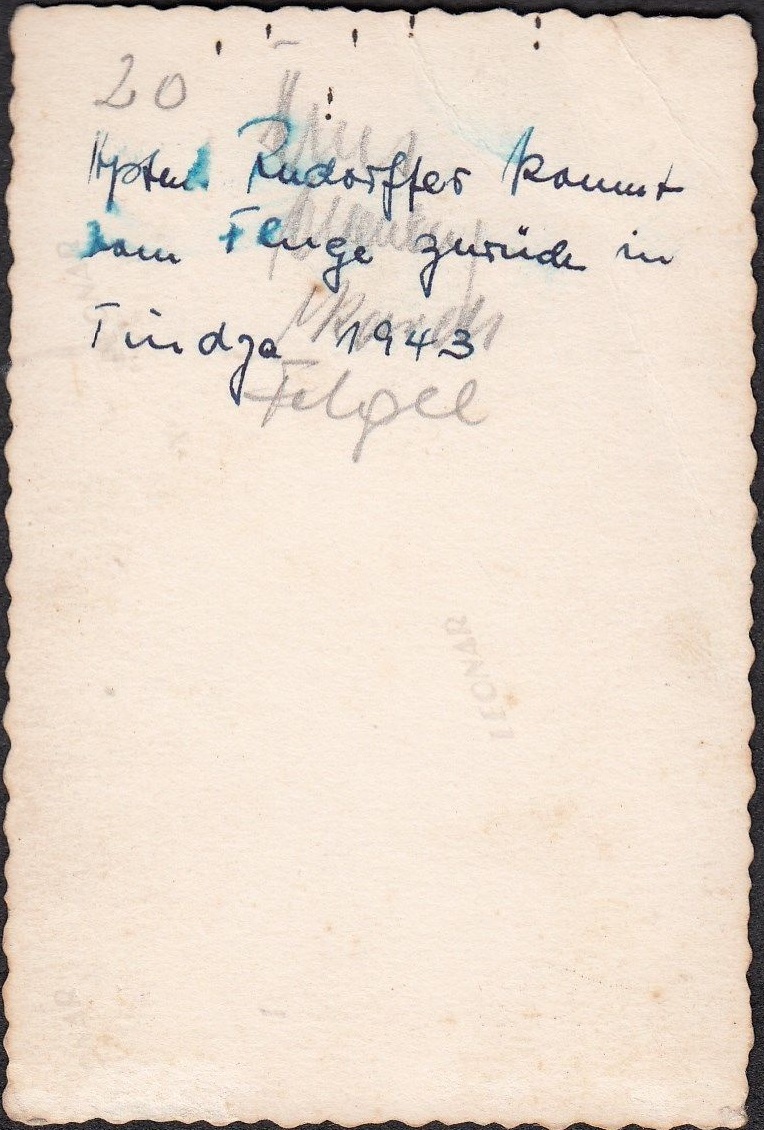 20
Hptm. Rudorffer kommt
vom Fluge zurück in
Tindja 1943
LEONAR